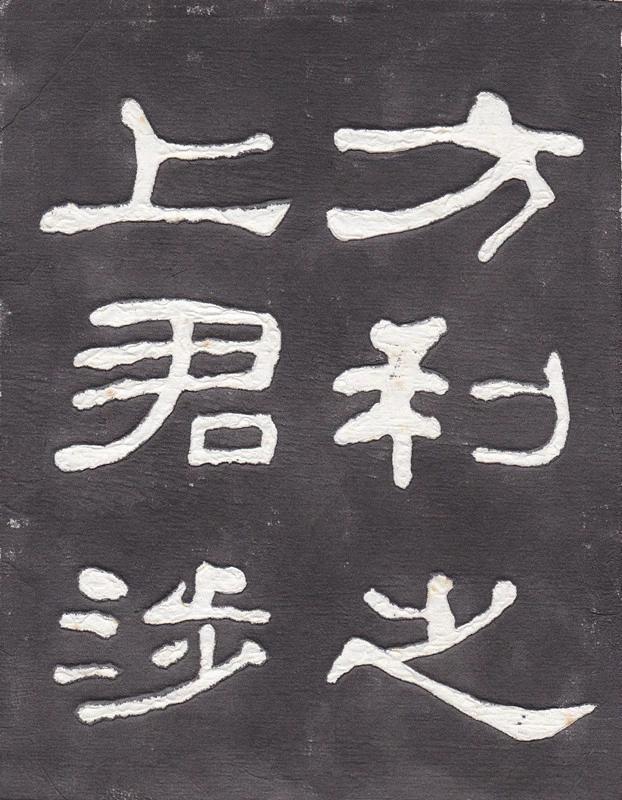 方利之
上君涉